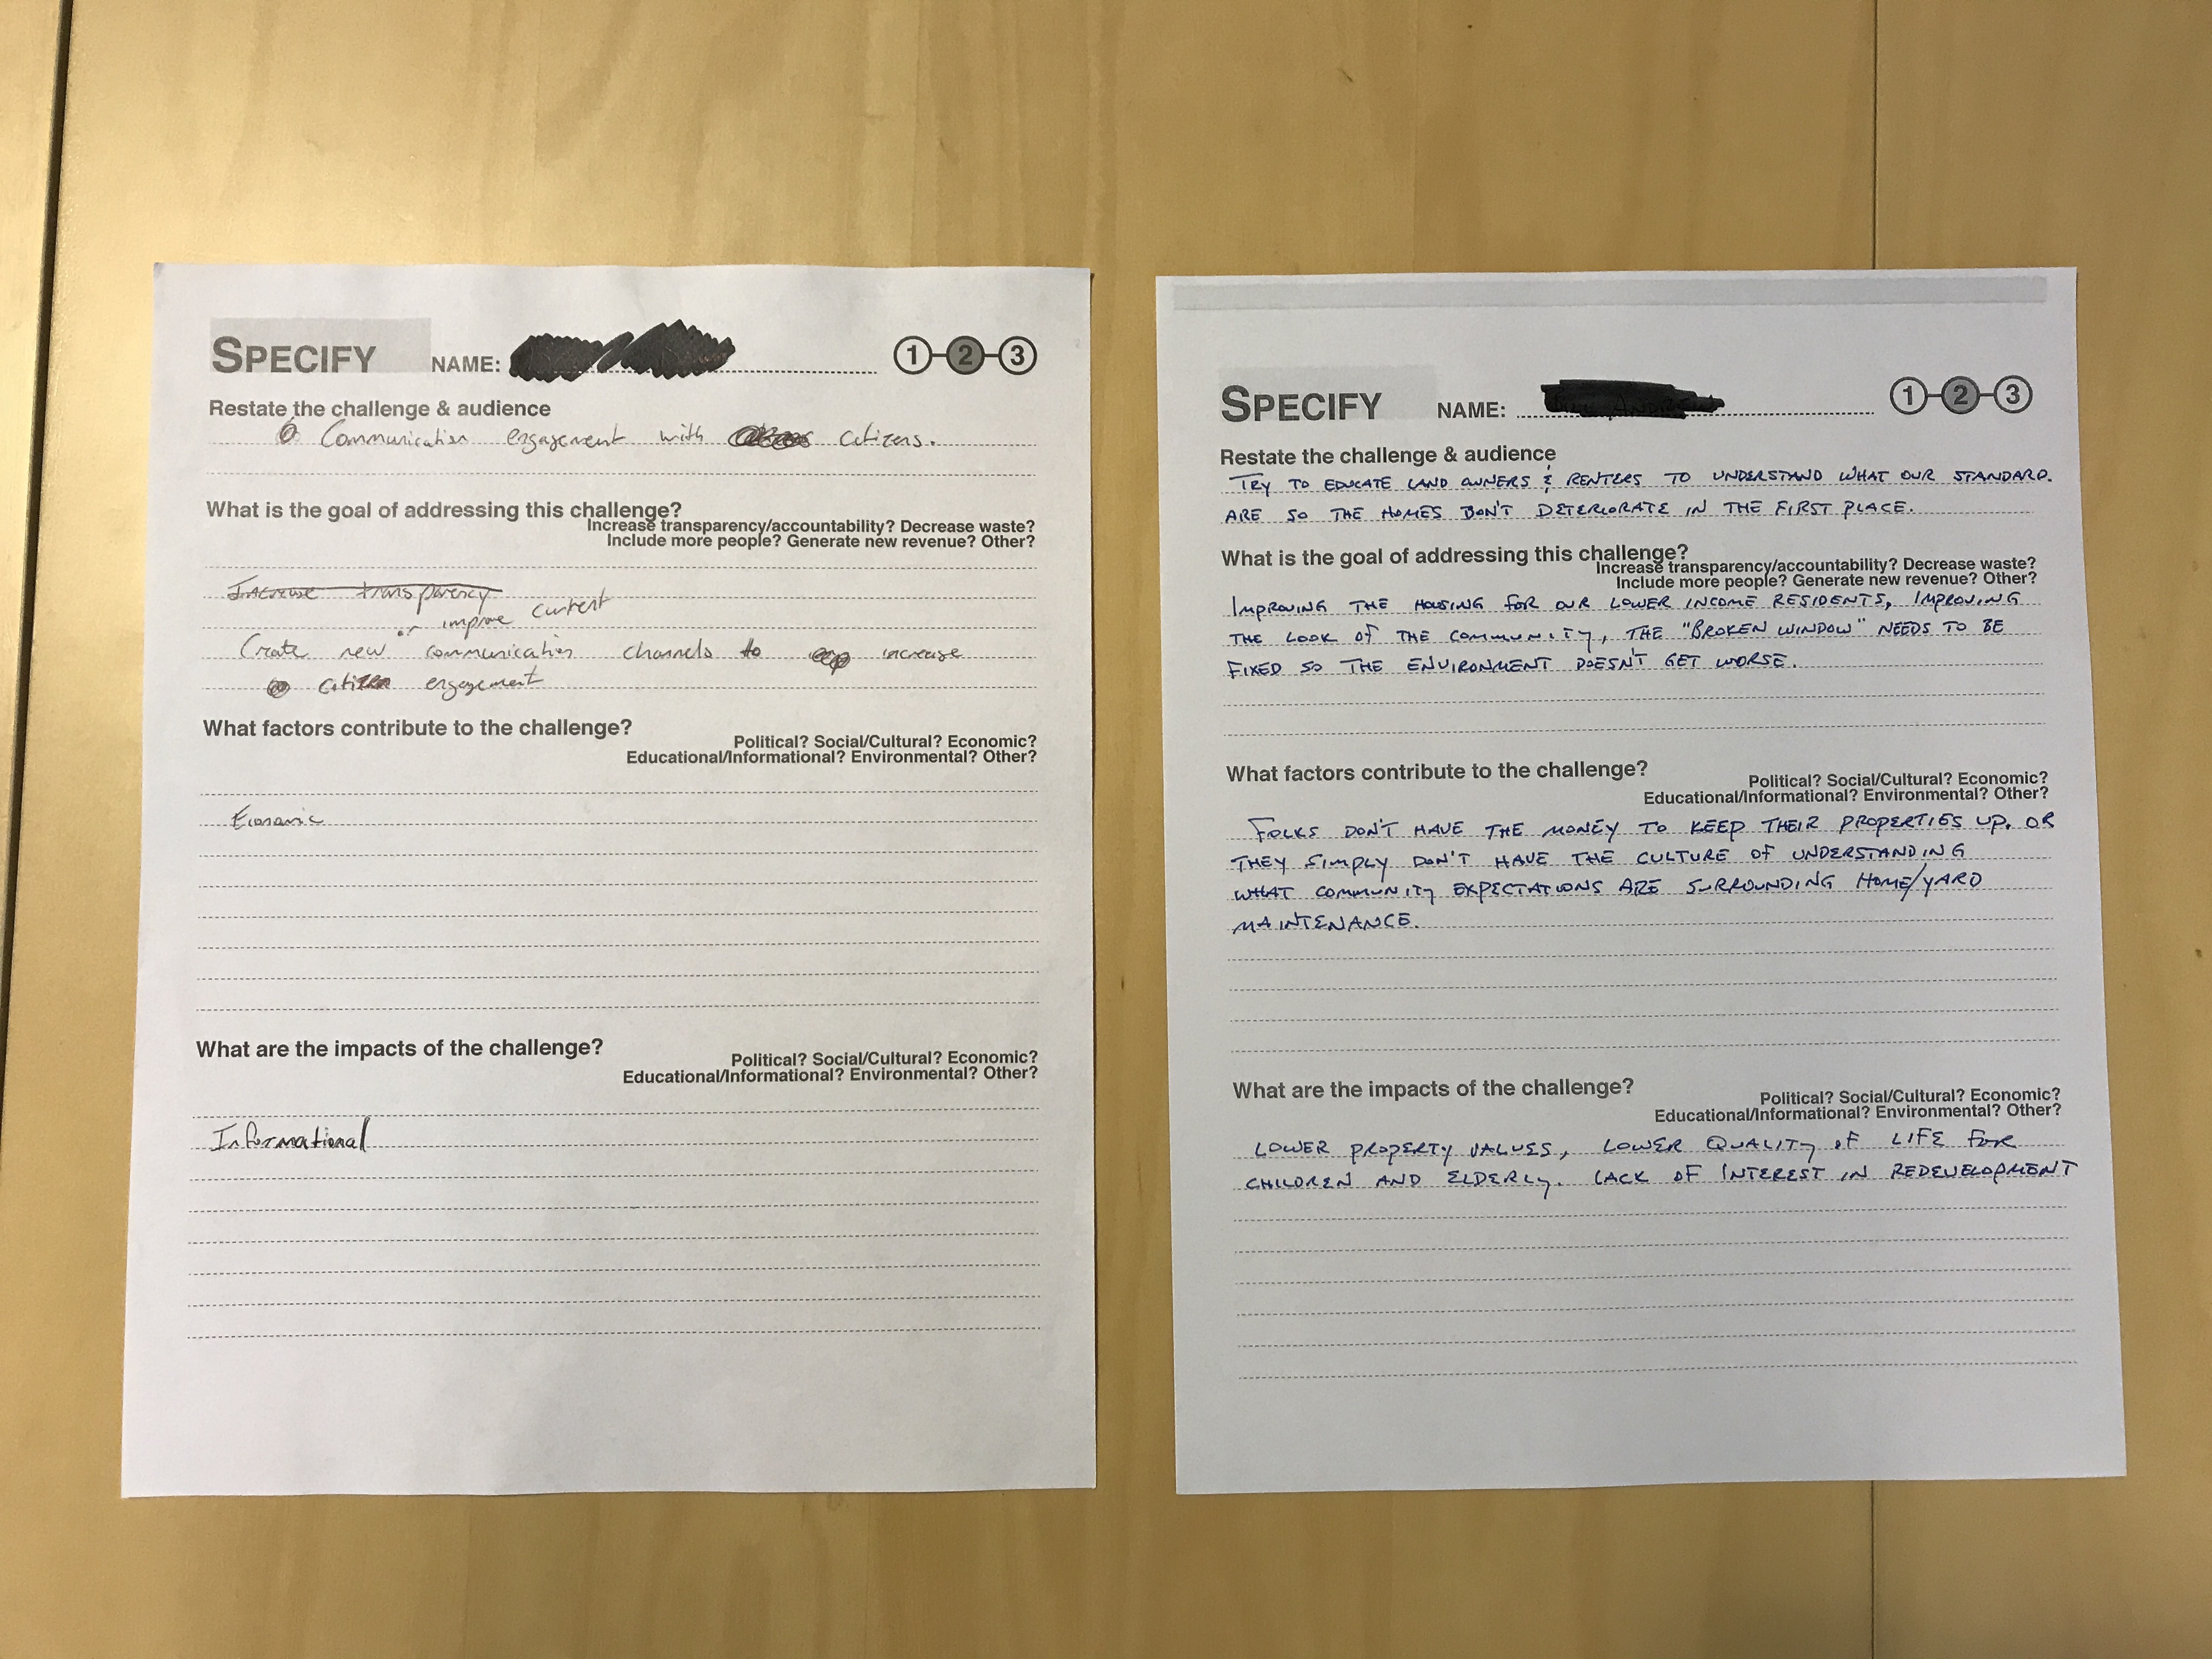 SPECIFY NAME:
1 2 3
Restate the challenge & audience
Communication engagement with citizens.
What is the goal of addressing this challenge?
Increase transparency/accountability? Decrease waste?
Include more people? Generate new revenue? Other?
Increase transparency
or improve current
Create new communication channels to increase
citizen engagement
What factors contribute to the challenge?
Political? Social/Cultural? Economic?
Educational/Informational? Environmental? Other?
Economic
What are the impacts of the challenge?
Political? Social/Cultural? Economic?
Educational/Informational? Environmental? Other?
Informational
SPECIFY NAME:
1 2 3
Restate the challenge & audience
TRY TO EDUCATE LAND OWNERS & RENTERS TO UNDERSTAND WHAT OUR STANDARD.
ARE SO THE HOMES DON'T DETERIORATE IN THE FIRST PLACE.
What is the goal of addressing this challenge?
Increase transparency/accountability? Decrease waste?
Include more people? Generate new revenue? Other?
IMPROVING THE HOUSING FOR OUR LOWER INCOME RESIDENTS, IMPROVING
THE LOOK OF THE COMMUNITY, THE "BROKEN WINDOW" NEEDS TO BE
FIXED SO THE ENVIRONMENT DOESN'T GET WORSE.
What factors contribute to the challenge?
Political? Social/Cultural? Economic?
Educational/Informational? Environmental? Other?
FOLKS DON'T HAVE THE MONEY TO KEEP THEIR PROPERTIES UP. OR
THEY SIMPLY DON'T HAVE THE CULTURE OF UNDERSTANDING
WHAT COMMUNITY EXPECTATIONS ARE SURROUNDING HOME/YARD
MAINTENANCE.
What are the impacts of the challenge?
Political? Social/Cultural? Economic?
Educational/Informational? Environmental? Other?
LOWER PROPERTY VALUES, LOWER QUALITY OF LIFE FOR
CHILDREN AND ELDERLY. LACK OF INTEREST IN REDEVELOPMENT